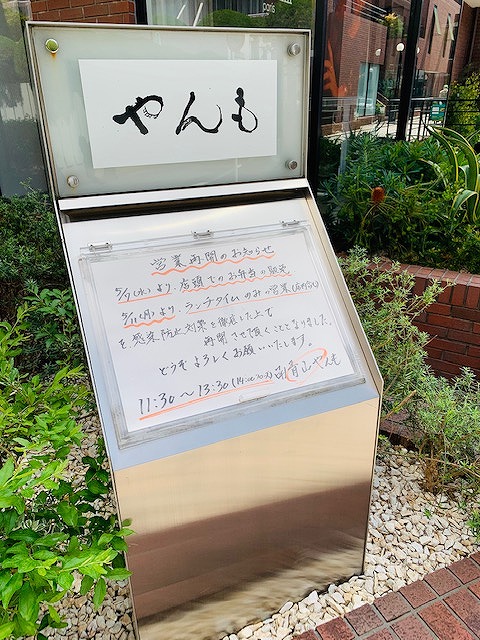 やんも
営業再開のお知らせ
より、店頭でのお弁当の販売
5/11(月)より、ランチタイムのみの営業
を感染防止対策を徹底した上で
再開させて頂くこととなりました。
どうぞよろしくお願いいたします。
11:30〜13:30 南青山やんも